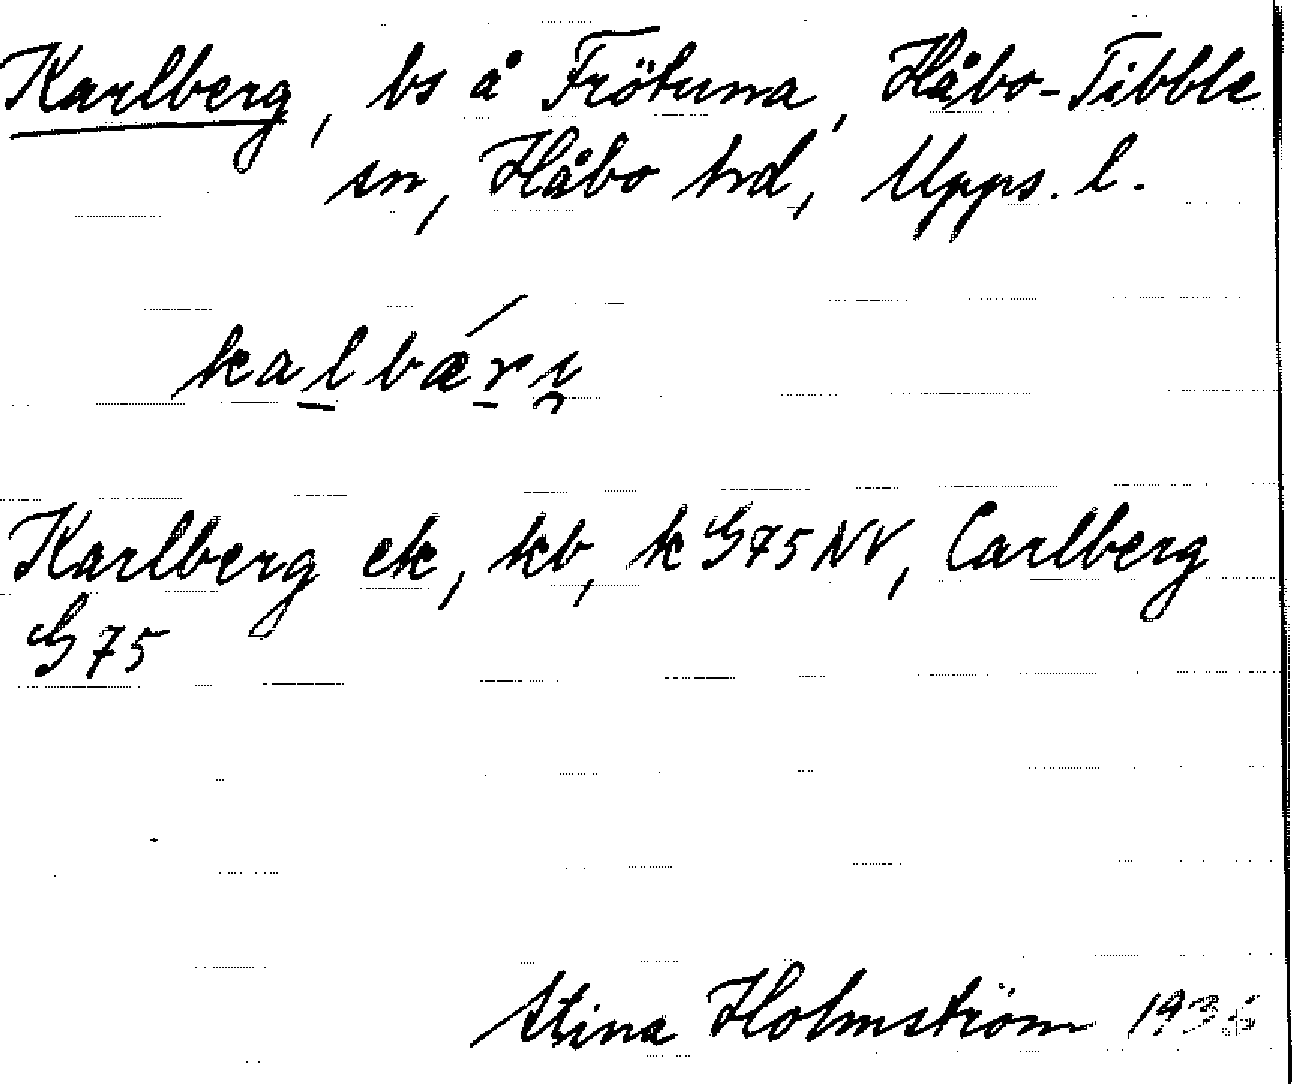 Karlberg, bs å Frötuna, Håbo-Tibble
sn, Håbo hrd, Upps. l.
kalbǽrı̯
Karlberg ek, kb, k G75 NV, Carlberg
G75
Stina Holmström